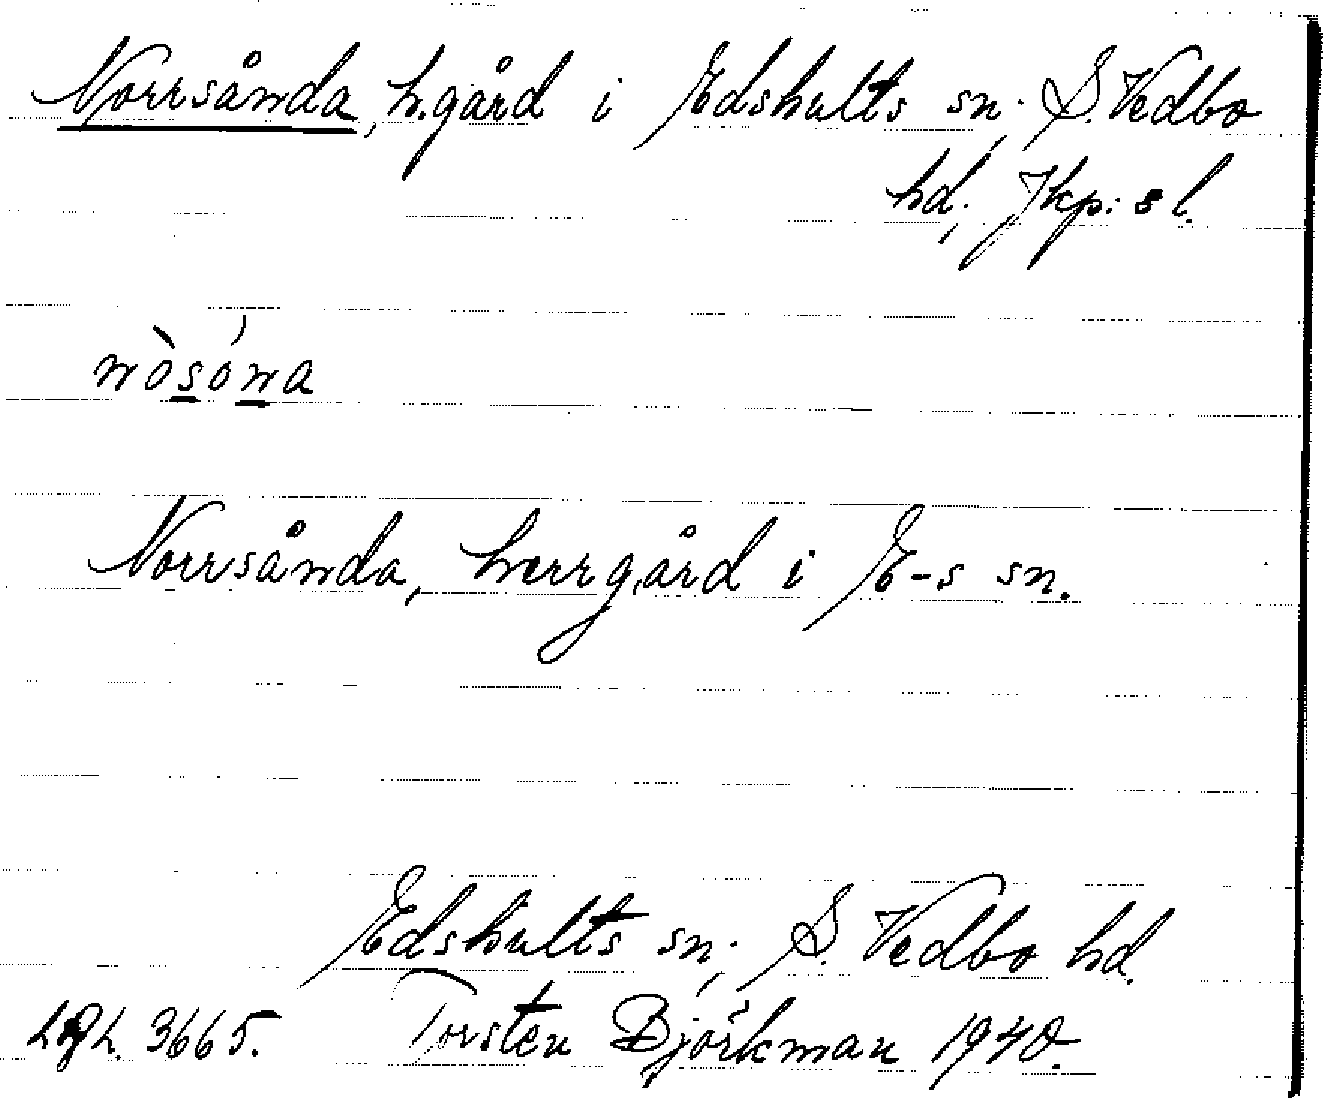 Norrsånda, h.gård i Edshults sn., S. Vedbo
hd., Jkp:s l.
nòsóna
Norrsånda, herrgård i E-s sn.
Edshults sn., S. Vedbo hd.
3665. Torsten Björkman 1940.